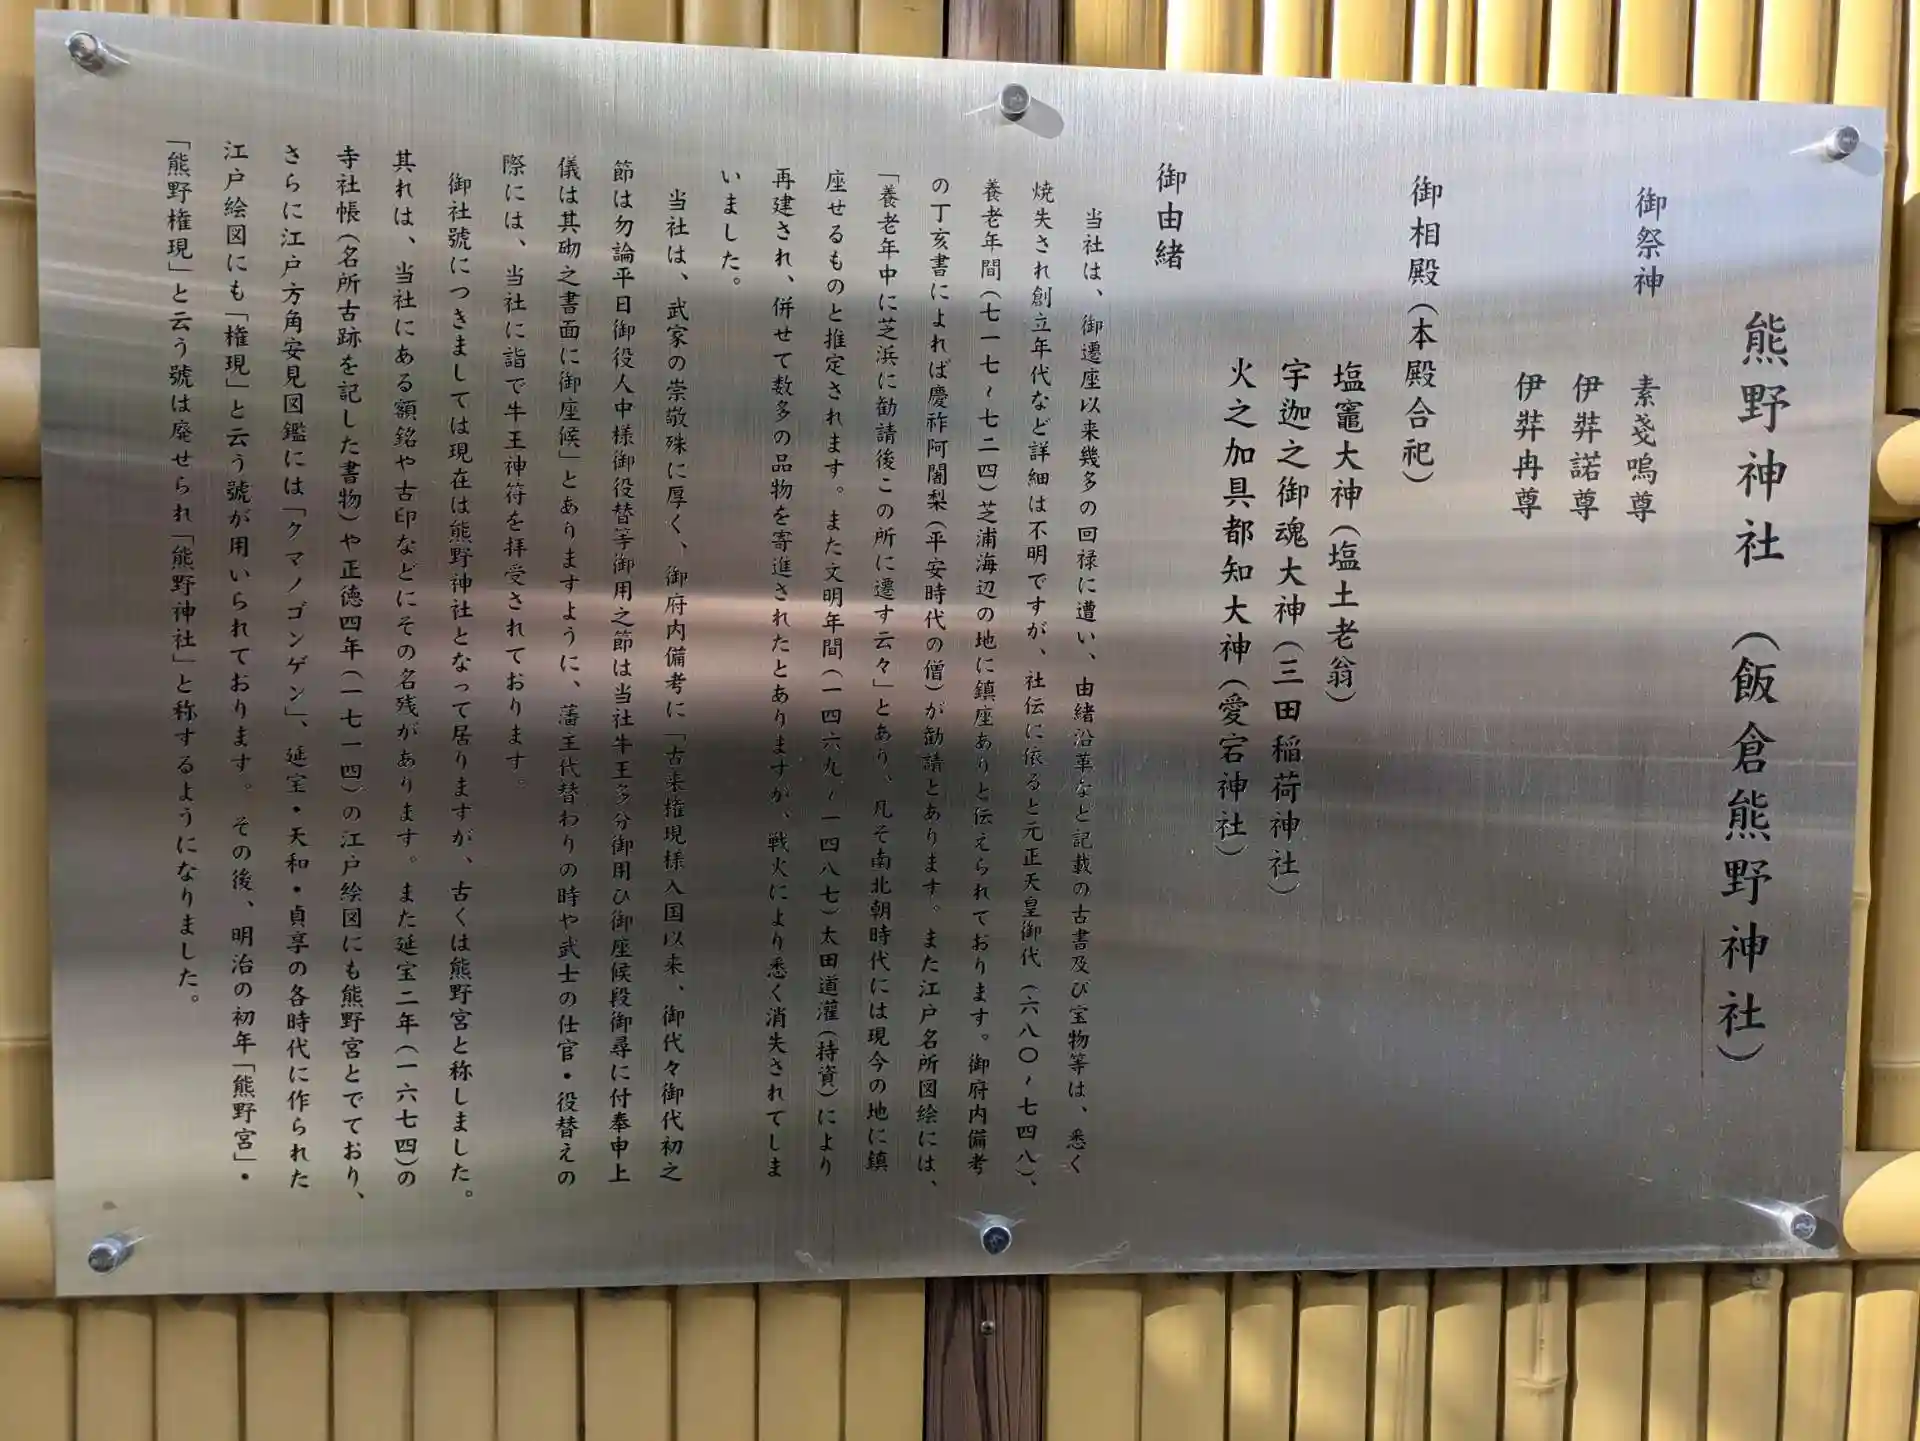 熊野神社　(飯倉熊野神社)
御祭神
素戔嗚尊
伊弉諾尊
伊弉冉尊
御相殿(本殿合祀)
塩竈大神(塩土老翁)
宇迦之御魂大神(三田稲荷神社)
火之加具都知大神(愛宕神社)
御由緒
当社は、御遷座以来幾多の回禄に遭い、由緒沿革など記載の古書及び宝物等は、悉く
焼失され創立年代など詳細は不明ですが、社伝に依ると元正天皇御代(六八〇～七四八)、
養老年間(七一七～七二四)芝浦海辺の地に鎮座ありと伝えられております。御府内備考
の丁亥書によれば慶祚阿闍梨(平安時代の僧)が勧請とあります。また江戸名所図絵には、
「養老年中に芝浜に勧請後この所に遷す云々」とあり、凡そ南北朝時代には現今の地に鎮
座せるものと推定されます。また文明年間(一四六九～一四八七)太田道灌(持資)により
再建され、併せて数多の品物を寄進されたとありますが、戦火により悉く消失されてしま
いました。
当社は、武家の崇敬殊に厚く、御府内備考に「古来権現様入国以来、御代々御代初之
節は勿論平日御役人中様御役替等御用之節は当社牛王多分御用ひ御座候段御尋に付奉申上
儀は其砌之書面に御座候」とありますように、藩主代替わりの時や武士の仕官・役替えの
際には、当社に詣で牛王神符を拝受されております。
御社號につきましては現在は熊野神社となって居りますが、古くは熊野宮と称しました。
其れは、当社にある額銘や古印などにその名残があります。また延宝二年(一六七四)の
寺社帳(名所古跡を記した書物)や正徳四年(一七一四)の江戸絵図にも熊野宮とでており、
さらに江戸方角安見図鑑には「クマノゴンゲン」、延宝・天和・貞享の各時代に作られた
江戸絵図にも「権現」と云う號が用いられております。その後、明治の初年「熊野宮」・
「熊野権現」と云う號は廃せられ「熊野神社」と称するようになりました。